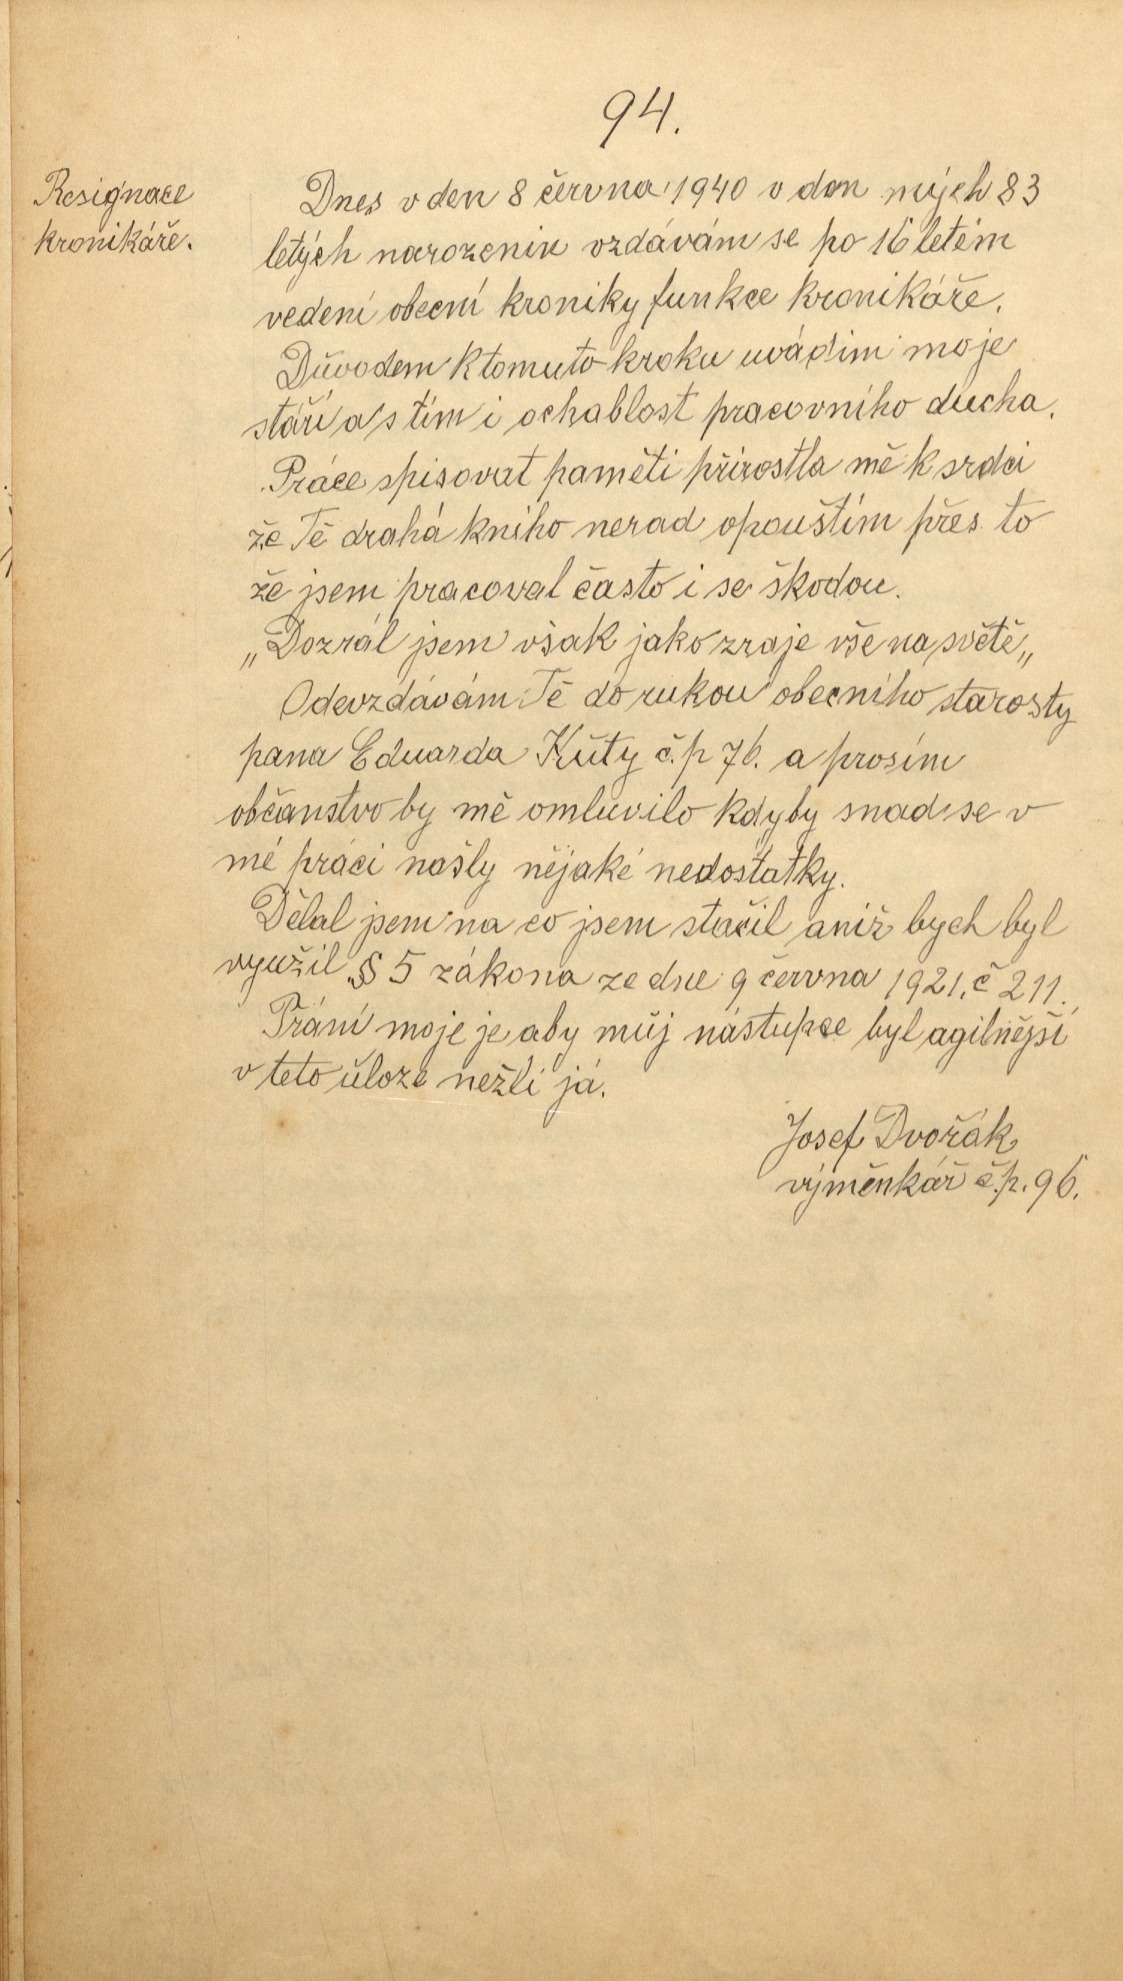 94.
Resignace
kronikáře.
Dnes v den 8 června 1940 v den mých 83
letých narozenin vzdávám se po 16 letém
vedení obecní kroniky funkce kronikáře.
Důvodem k tomuto kroku uvádím moje
stáří a s tím i ochablost pracovního ducha.
Práce spisovat paměti přirostla mě k srdci
že Tě drahá kniho nerad opouštím přes to
že jsem pracoval často i se škodou.
„Dozrál jsem však jako zraje vše na světě„
Odevzdávám Tě do rukou obecního starosty
pana Eduarda Kůty č.p 76. a prosím
občanstvo by mě omluvilo kdyby snad se v
mé práci našly nějaké nedostatky.
Dělal jsem na co jsem stačil aniž bych byl
využil § 5 zákona ze dne 9 června 1921. č 211.
Přání moje je aby můj nástupce byl agilnější
v této úloze nežli já.
Josef Dvořák
výměnkář č.p. 96.